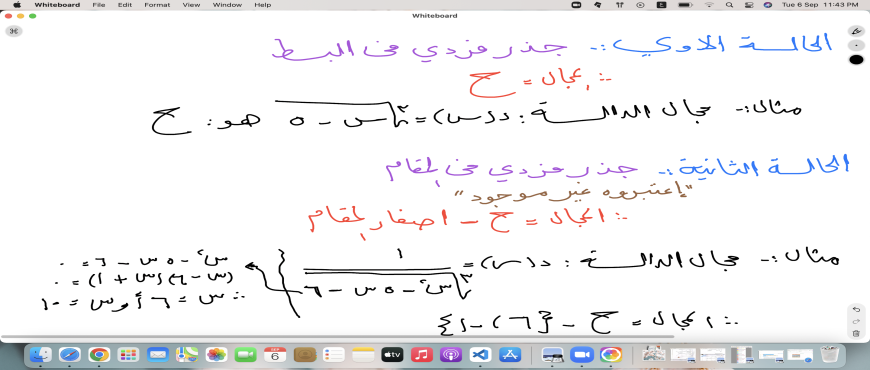 Whiteboard File Edit Format View Window Help Tue 6 Sep 11:43 PM
Whiteboard
الحالة الاولي :- جذر فردي في البسط
∴ المجال = ح
مثال :- مجال الدالة : د(س) = ∛(س - ٥) هو : ح
الحالة الثانية :- جذر فردي في المقام
"إعتبروه غير موجود"
∴ المجال = ح - اصفار المقام
مثال :- مجال الدالة : د(س) = ١ / ∛(س² - ٥س - ٦)
س² - ٥س - ٦ = ٠
(س - ٦)(س + ١) = ٠
∴ س = ٦ أو س = -١
∴ المجال = ح - {٦ ، -١}